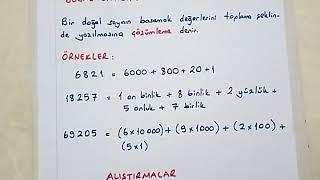 Bir doğal sayının basamak değerlerini toplama şeklin-
de yazılmasına çözümleme denir.
ÖRNEKLER:
6821 = 6000 + 800 + 20 + 1
18257 = 1 on binlik + 8 binlik + 2 yüzlük +
5 onluk + 7 birlik
69205 = (6x10000) + (9x1000) + (2x100) +
(5x1)
ALIŞTIRMALAR